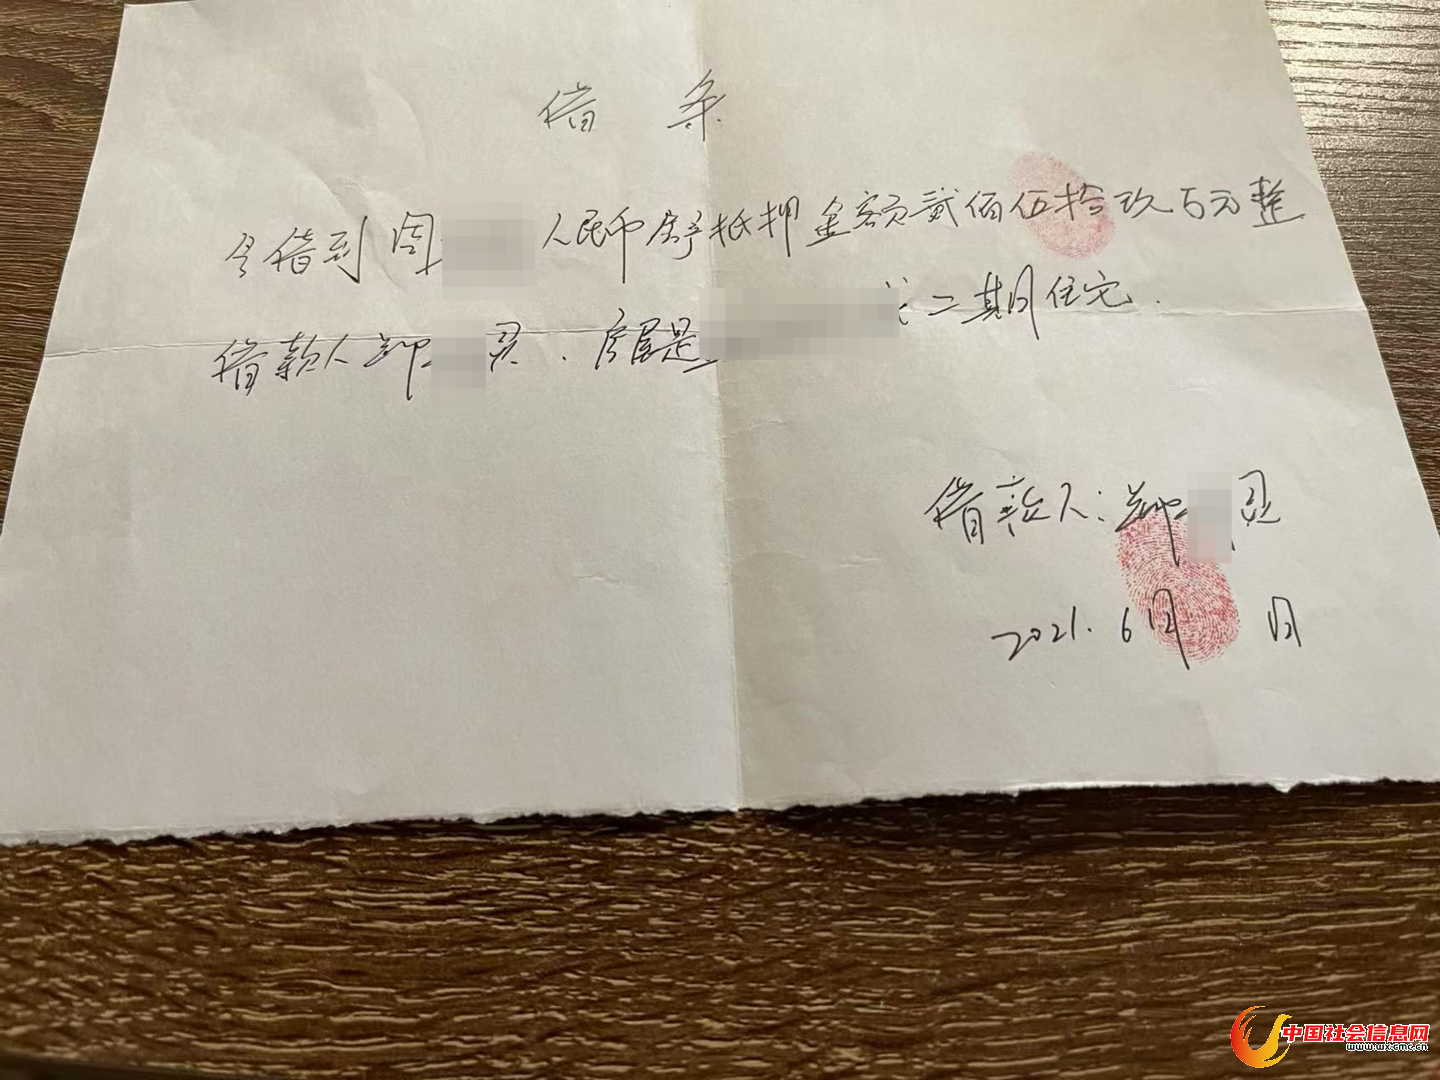 借条
今借到周 人民币房产抵押金额贰佰伍拾玖万元整
借款人 灵.房屋是 二期住宅.
借款人: 灵
2021.6月 日
中国社会信息网
www.wxcmc.cn